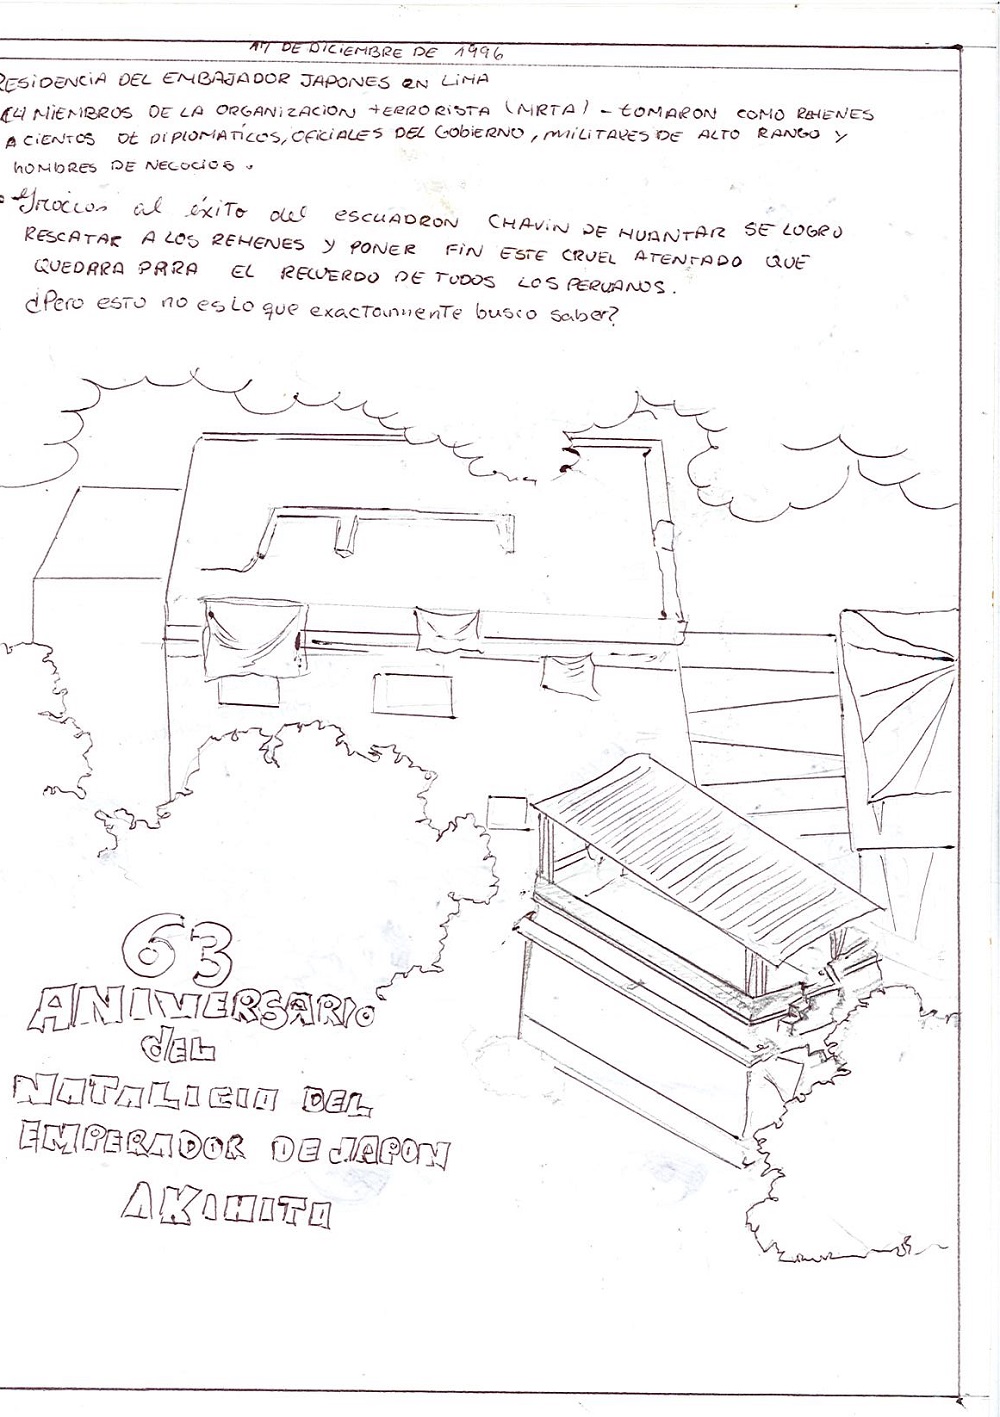 17 DE DICIEMBRE DE 1996
RESIDENCIA DEL EMBAJADOR JAPONES EN LIMA
14 MIEMBROS DE LA ORGANIZACION TERRORISTA (MRTA) - TOMARON COMO REHENES
A CIENTOS DE DIPLOMATICOS, OFICIALES DEL GOBIERNO, MILITARES DE ALTO RANGO Y
HOMBRES DE NEGOCIOS.
Gracias al éxito del ESCUADRON CHAVIN DE HUANTAR SE LOGRO
RESCATAR A LOS REHENES Y PONER FIN ESTE CRUEL ATENTADO QUE
QUEDARA PARA EL RECUERDO DE TUDOS LOS PERUANOS.
¿Pero esto no es lo que exactamente busco saber?
63
ANIVERSARIO
DEL
NATALICIO DEL
EMPERADOR DE JAPON
AKIHITO